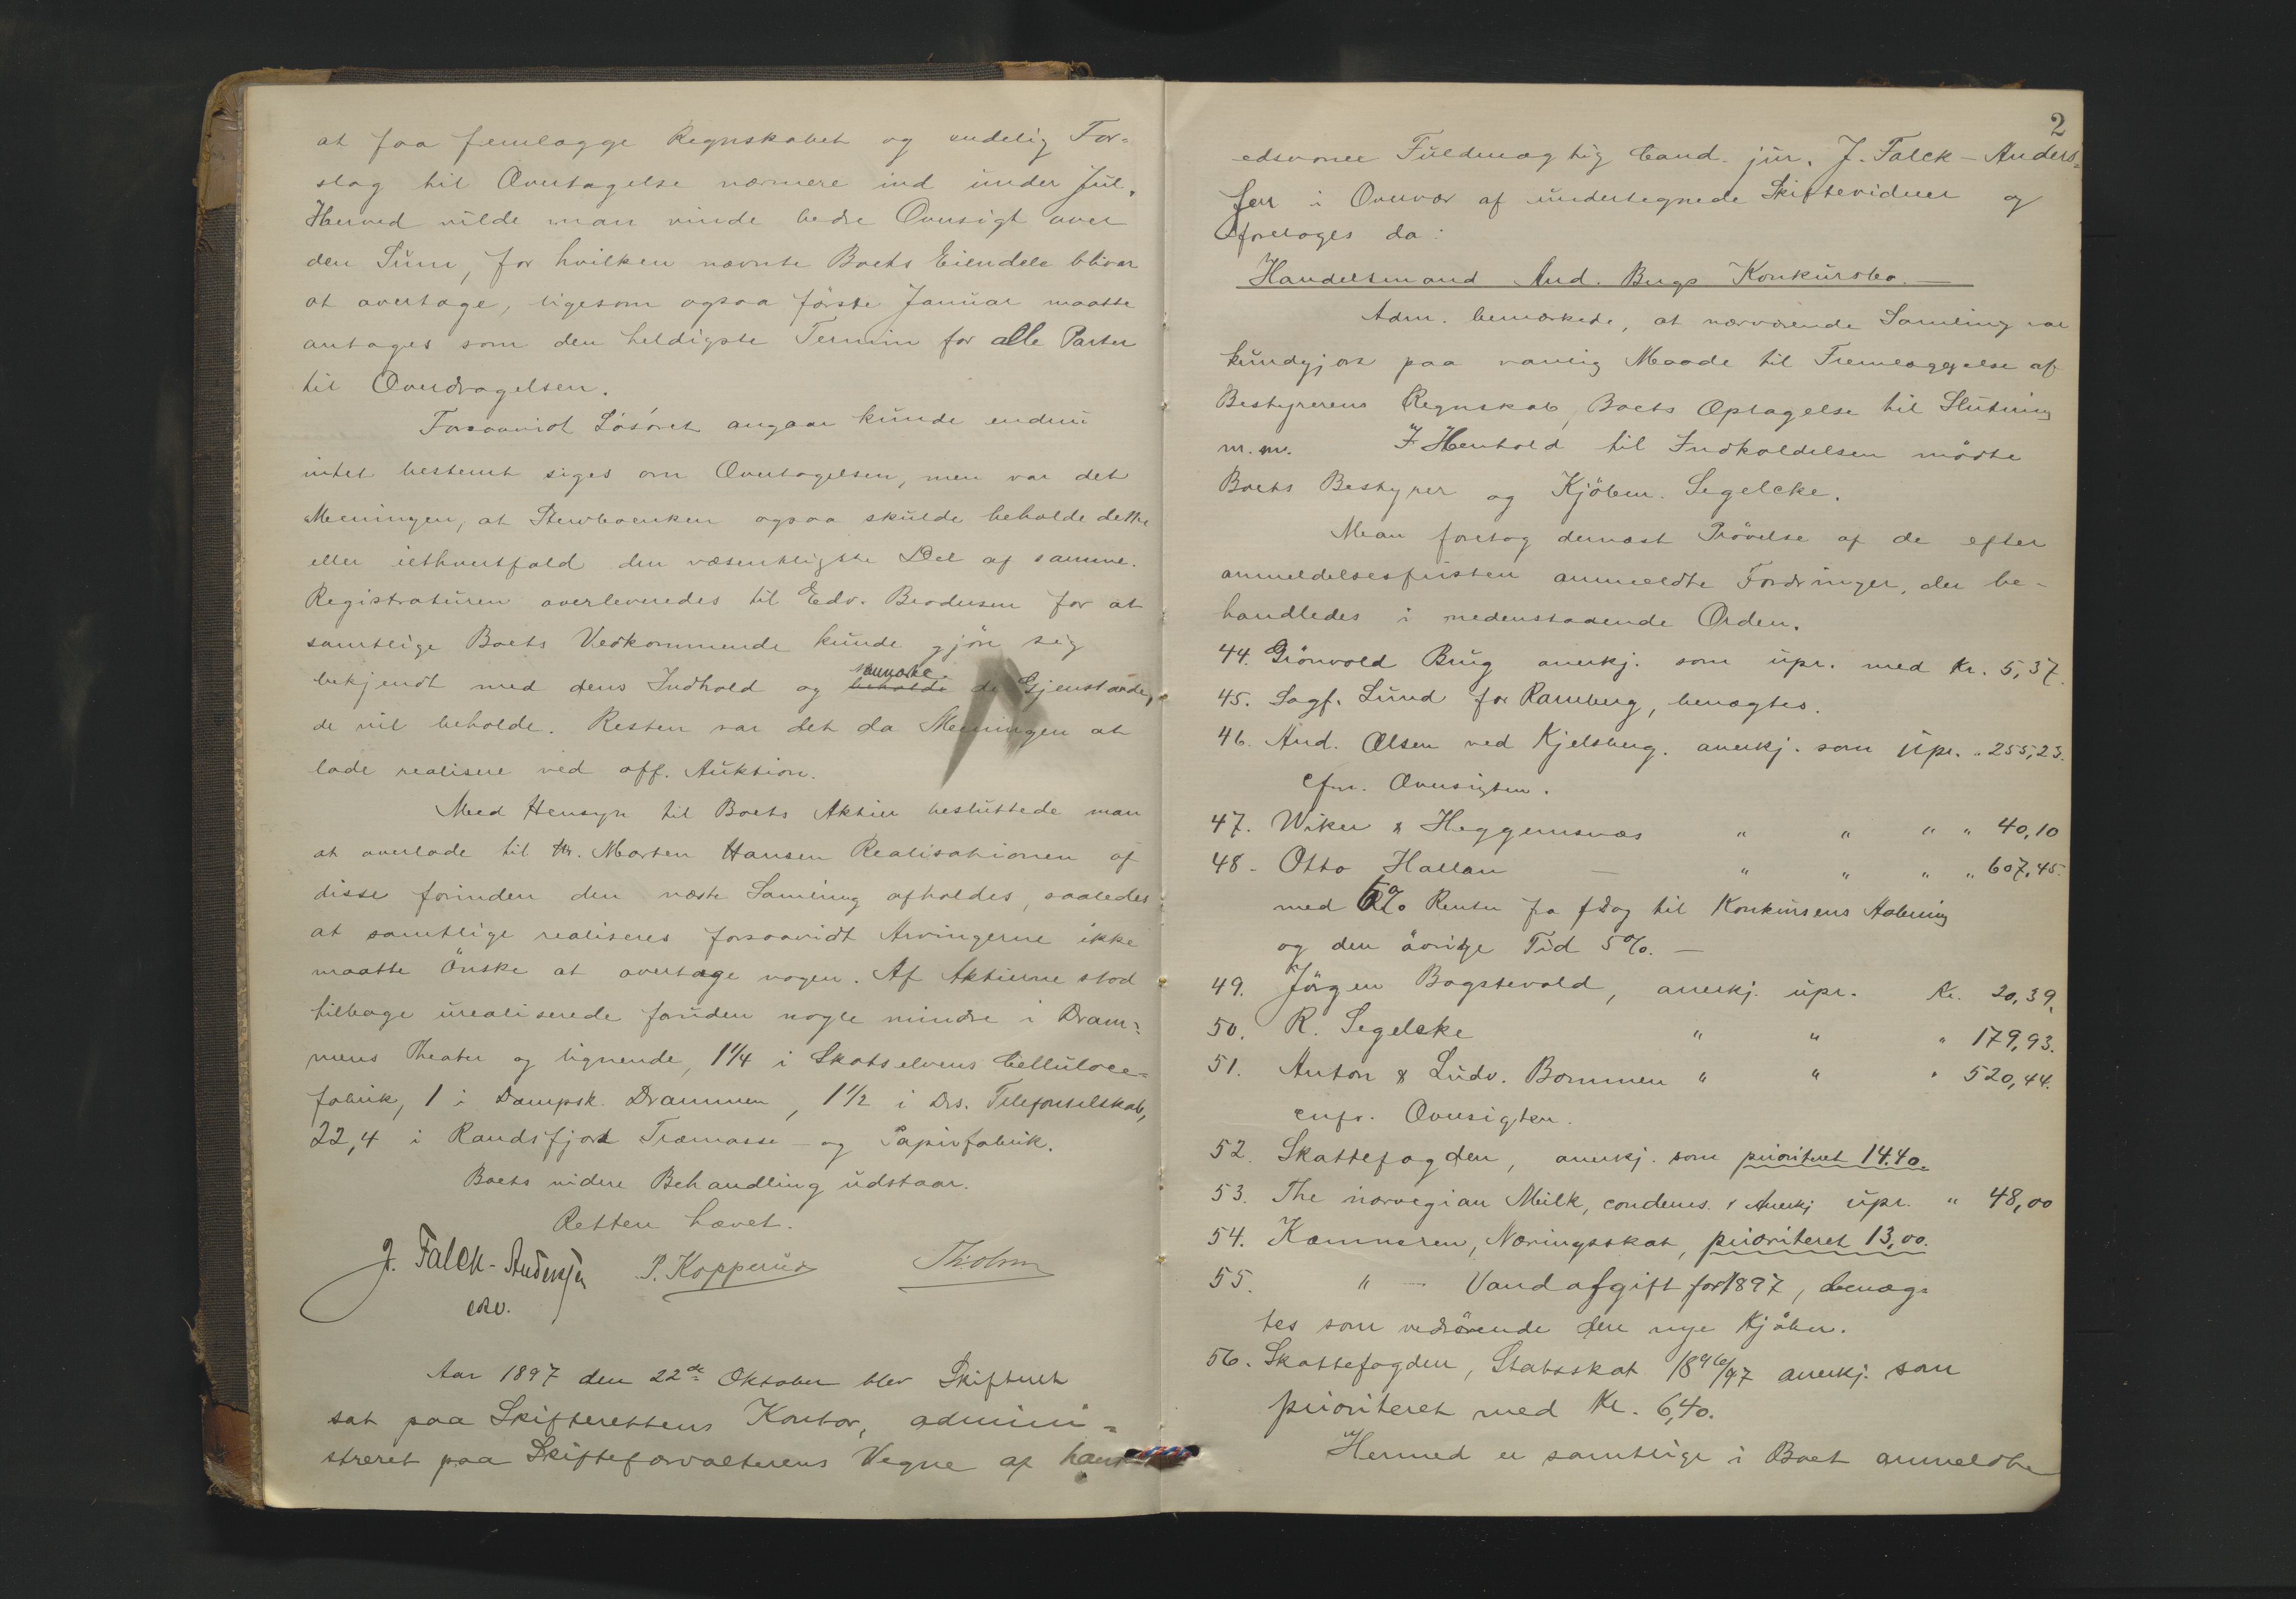 at faa fremlægge Regnskabet og endelig For-
slag til Overtagelse nærmere ind under Jul.
Herved vilde man vinde bedre Oversigt over
den Sum, for hvilken nævnte Boets Eiendele bliver
at overtage, ligesom ogsaa förste Januar maatte
antages som den heldigste Termin for alle Parter
til Overdragelsen.
Forsaavidt Lösöret angaar kunde endnu
intet bestemt siges om Overtagelsen, men var det
Meningen, at Stervboenken ogsaa skulde beholde dette
eller iethvertfald den væsentligste Del af samme.
Registraturen overleveredes til Edv. Brodersen for at
samtlige Boets Vedkommende kunde gjöre sig
bekjendt med dens Indhold og beholde de Gjenstande,
de vil beholde. Resten var det da Meningen at
lade realisere ved off. Auktion.
Med Hensyn til Boets Aktier besluttede man
at overlade til Hr. Morten Hansen Realisationen af
disse forinden den næste Samling afholdes, saaledes
at samtlige realiseres forsaavidt Arvingerne ikke
maatte Önske at overtage nogen. Af Aktierne stod
tilbage urealiserede foruden nogle mindre i Dram-
mens Theater og lignende, 1 1/4 i Skotselvens Cellulose-
fabrik, 1 i Dampsk. Drammen, 1 1/2 i Drs. Telefonselskab,
22,4 i Randsfjord Træmasse- og Papirfabrik.
Boets videre Behandling udstaar.
Retten hævet.
J. Falck-Anderssen P. Kopperud Tholm
edsv.
Aar 1897 den 22de Oktober blev Skifteret
sat paa Skifterettens Kontor, admini-
streret paa Skifteforvalterens Vegne af hans
2
edsvorne Fuldmægtig Cand. jur. J. Falck-Anders-
sen i Overvær af undertegnede Skiftevidner og
foretoges da:
Handelsmand And. Bugs Konkursbo.—
Adm. bemærkede, at nærværende Samling var
kundgjort paa vanlig Maade til Fremlæggelse af
Bestyrerens Regnskab, Boets Optagelse til Slutning
m.m. I Henhold til Indkaldelsen mödte
Boets Bestyrer og Kjöbm. Segelcke.
Man foretog dernæst Prövelse af de efter
anmeldelsesfristen anmeldte Fordringer, der be-
handledes i nedenstaaende Orden.
44. Grönvold Brug anerkj. som upr. med Kr. 5,37.
45. Sagf. Lund for Ramberg, benægtes.
46. And. Olsen ved Kjelsberg. anerkj. som Upr. " 255,23.
cfr. Oversigten.
47. Wiker & Heggemsnæs " " " " 40,10
48- Otto Hallan — " " " " 607,45.
med 6% Renter fra f Dag til Konkursens Aabning
og den övrige Tid 5%. —
49. Jörgen Bogstevold, anerkj. upr. Kr. 20,39,
50. R. Segelcke " " " 179,93.
51. Anton & Ludv. Bommen " " " 520,44.
cnfr. Oversigten.
52. Skattefogden, anerkj. som prioriteret 14.40.
53. The norvegian Milk, condens. & Anerkj upr. " 48,00
54. Kæmneren, Næringsskat, prioriteret 13,00.
55. " — Vandafgift for 1897, benæg-
tes som vedrörende den nye Kjöber.
56. Skattefogden, Statsskat 1896/97 anerkj. som
prioriteret med Kr. 6,40.
Hermed er samtlige i Boet anmeldte